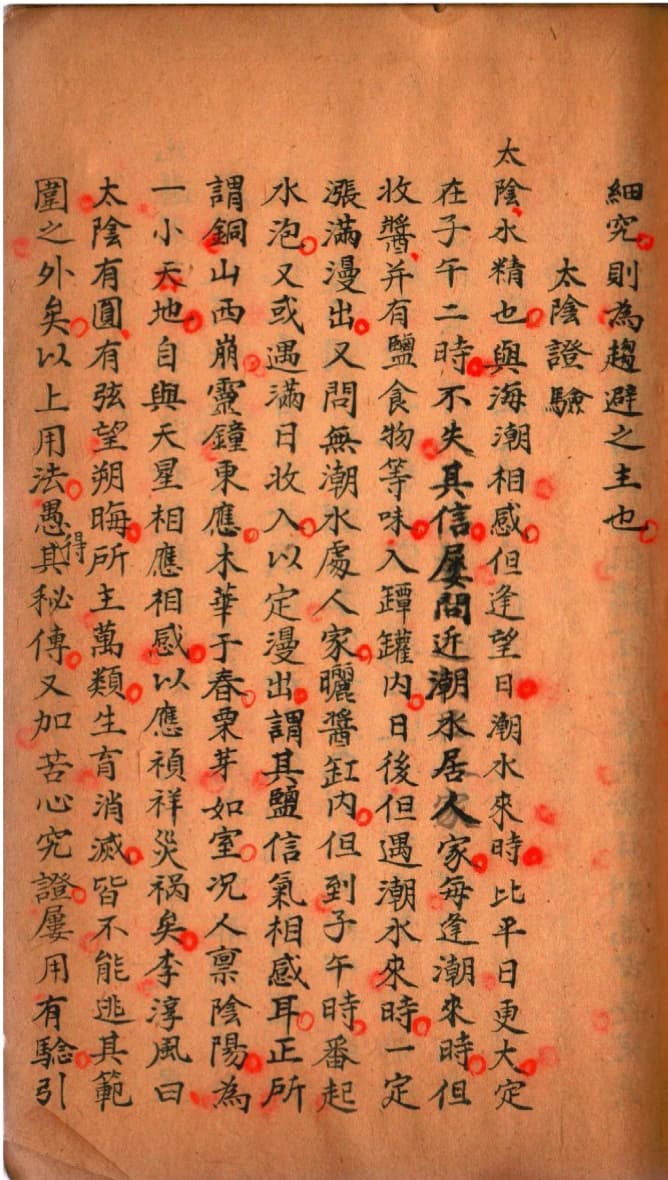 細究則為趨避之主也
太陰證驗
太陰水精也與海潮相感但逢望日潮水來時比平日更大定
在子午二時不失其信屡問近潮水居人家每逢潮來時但
收醬并有鹽食物等味入罈罐内日後但遇潮水來時一定
漲滿漫出又問無潮水處人家曬醬缸内但到子午時番起
水泡又或遇滿日收入以定漫出謂其鹽信氣相感耳正所
謂銅山西崩靈鐘東應木華于春栗芽如室况人禀陰陽為
一小天地自與天星相應相感以應禎祥災禍矣李淳風曰
太陰有圓有弦望朔晦所主萬類生育消滅皆不能逃其範
圍之外矣以上用法愚得其秘傳又加苦心究證屡用有驗引